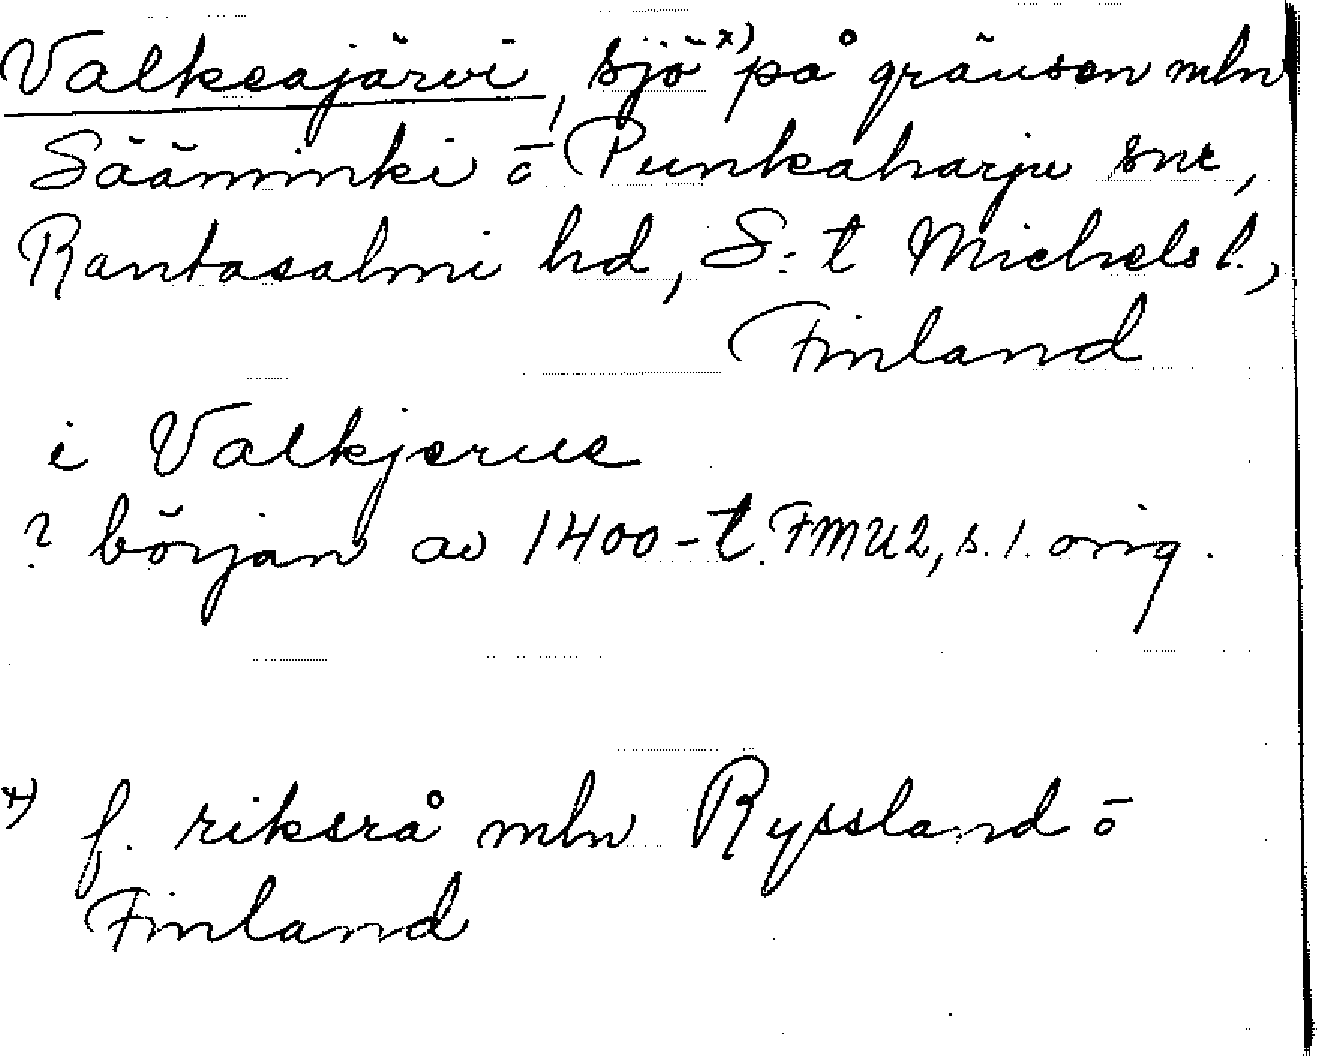 Valkeajärvi, sjö x) på gränsen mln
Sääminki o Punkaharju snr,
Rantasalmi hd, S:t Michels l.,
Finland
i Valkjerue
? början av 1400-t. FMU2, s. 1. orig.
x) f. riksrå mln Ryssland o
Finland